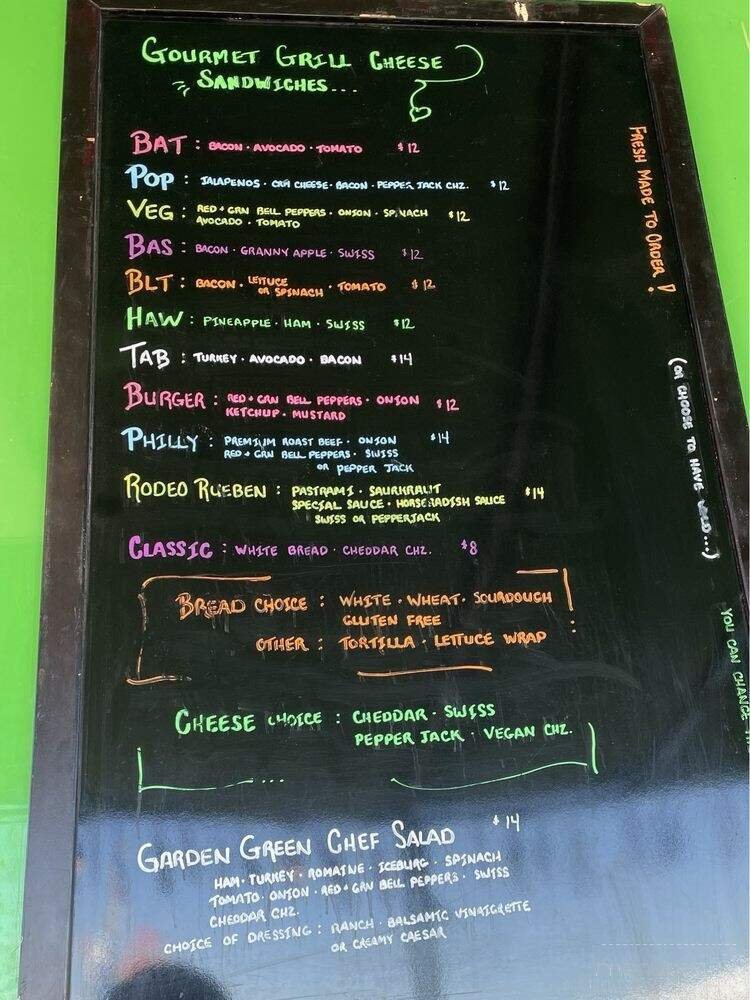 GOURMET GRILL CHEESE
SANDWICHES...
BAT : BACON · AVOCADO · TOMATO $12
POP : JALAPENOS · CRM CHEESE · BACON · PEPPER JACK CHZ. $12
VEG : RED + GRN BELL PEPPERS · ONION · SPINACH $12
AVOCADO · TOMATO
BAS : BACON · GRANNY APPLE · SWISS $12
BLT : BACON · LETTUCE OR SPINACH · TOMATO $12
HAW : PINEAPPLE · HAM · SWISS $12
TAB : TURKEY · AVOCADO · BACON $14
BURGER : RED + GRN BELL PEPPERS · ONION $12
KETCHUP · MUSTARD
PHILLY : PREMIUM ROAST BEEF · ONION $14
RED + GRN BELL PEPPERS · SWISS
OR PEPPER JACK
RODEO RUEBEN : PASTRAMI · SAURKRAUT $14
SPECIAL SAUCE · HORSERADISH SAUCE
SWISS OR PEPPERJACK
CLASSIC : WHITE BREAD · CHEDDAR CHZ. $8
BREAD CHOICE : WHITE · WHEAT · SOURDOUGH
GLUTEN FREE
OTHER : TORTILLA · LETTUCE WRAP
CHEESE CHOICE : CHEDDAR · SWISS
PEPPER JACK · VEGAN CHZ.
GARDEN GREEN CHEF SALAD $14
HAM · TURKEY · ROMAINE · ICEBURG · SPINACH
TOMATO · ONION · RED + GRN BELL PEPPERS · SWISS
CHEDDAR CHZ.
CHOICE OF DRESSING : RANCH · BALSAMIC VINAIGRETTE
OR CREAMY CAESAR
FRESH MADE TO ORDER!
(OR CHOOSE TO HAVE ...)
YOU CAN CHANGE